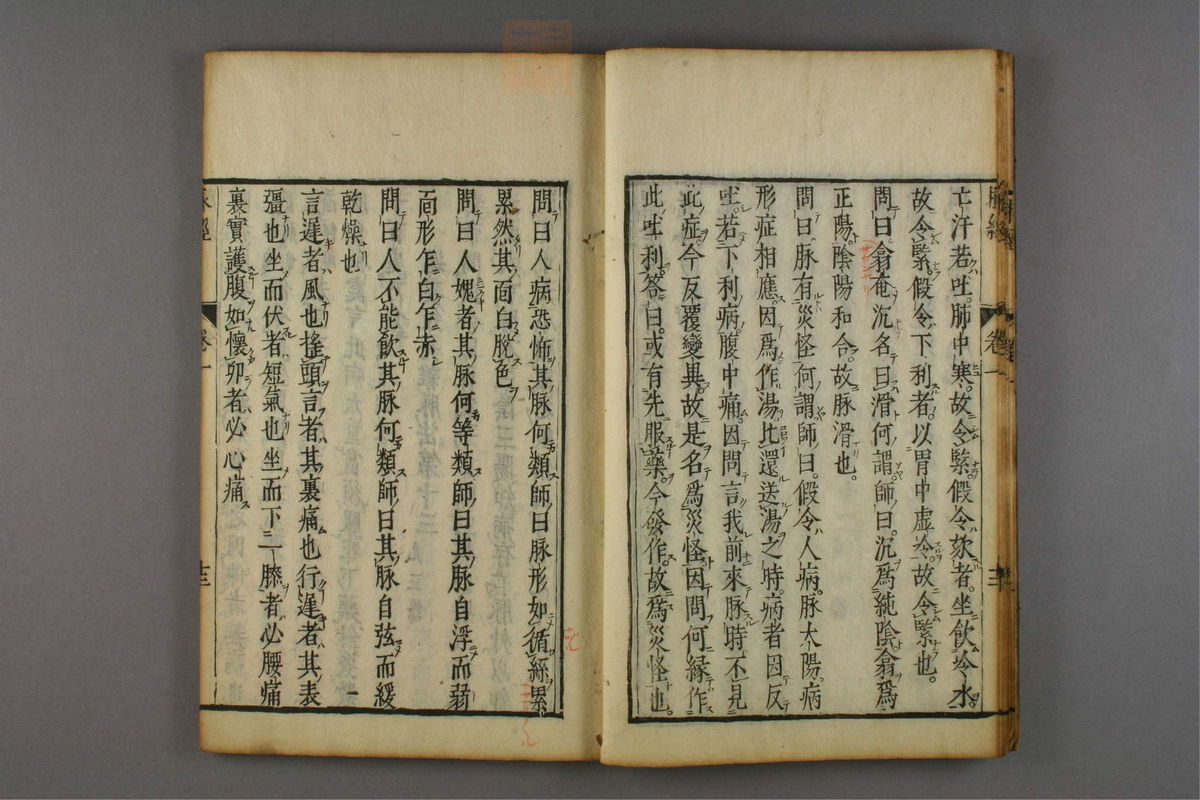 亡汗若吐肺中寒故令緊假令欬者坐飲冷水
故令緊假令下利者以胃中虛冷故令緊也
問曰翕奄沉名曰滑何謂師曰沉爲純陰翕爲
正陽陰陽和合故脉滑也
問曰脉有災怪何謂師曰假令人病脉太陽病
形症相應因爲作湯比還送湯之時病者因反
吐若下利病腹中痛因問言我前來脉時不見
此症今反覆變異故是名爲災怪因問何緣作
此吐利荅曰或有先服藥今發作故爲災怪也
脉經
卷一
十三
問曰人病恐怖其脉何類師曰脉形如循絲累
累然其面白脫色
問曰人媿者其脉何等類師曰其脉自浮而弱
面形乍白乍赤
問曰人不能飲其脉何類師曰其脉自弦而緩
乾燥也
言遲者風也搖頭言者其裏痛也行遲者其表
彊也坐而伏者短氣也坐而下一膝者必腰痛
裏實護腹如懷卵者必心痛
脉經
卷一
十三